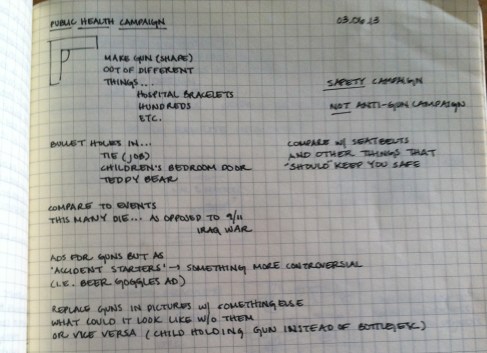 PUBLIC HEALTH CAMPAIGN
03.06.13
MAKE GUN (SHAPE)
OUT OF DIFFERENT
THINGS....
HOSPITAL BRACELETS
HUNDREDS
ETC.
SAFETY CAMPAIGN
NOT ANTI-GUN CAMPAIGN
BULLET HOLES IN...
TIE (JOB)
CHILDREN'S BEDROOM DOOR
TEDDY BEAR
COMPARE W/ SEATBELTS
AND OTHER THINGS THAT
"SHOULD" KEEP YOU SAFE
COMPARE TO EVENTS
THIS MANY DIE... AS OPPOSED TO 9/11
IRAQ WAR
ADS FOR GUNS BUT AS
'ACCIDENT STARTERS' → SOMETHING MORE CONTROVERSIAL
(I.E. BEER GOGGLES AD)
REPLACE GUNS IN PICTURES W/ SOMETHING ELSE
WHAT COULD IT LOOK LIKE W/O THEM
OR VICE VERSA (CHILD HOLDING GUN INSTEAD OF BOTTLE, ETC)